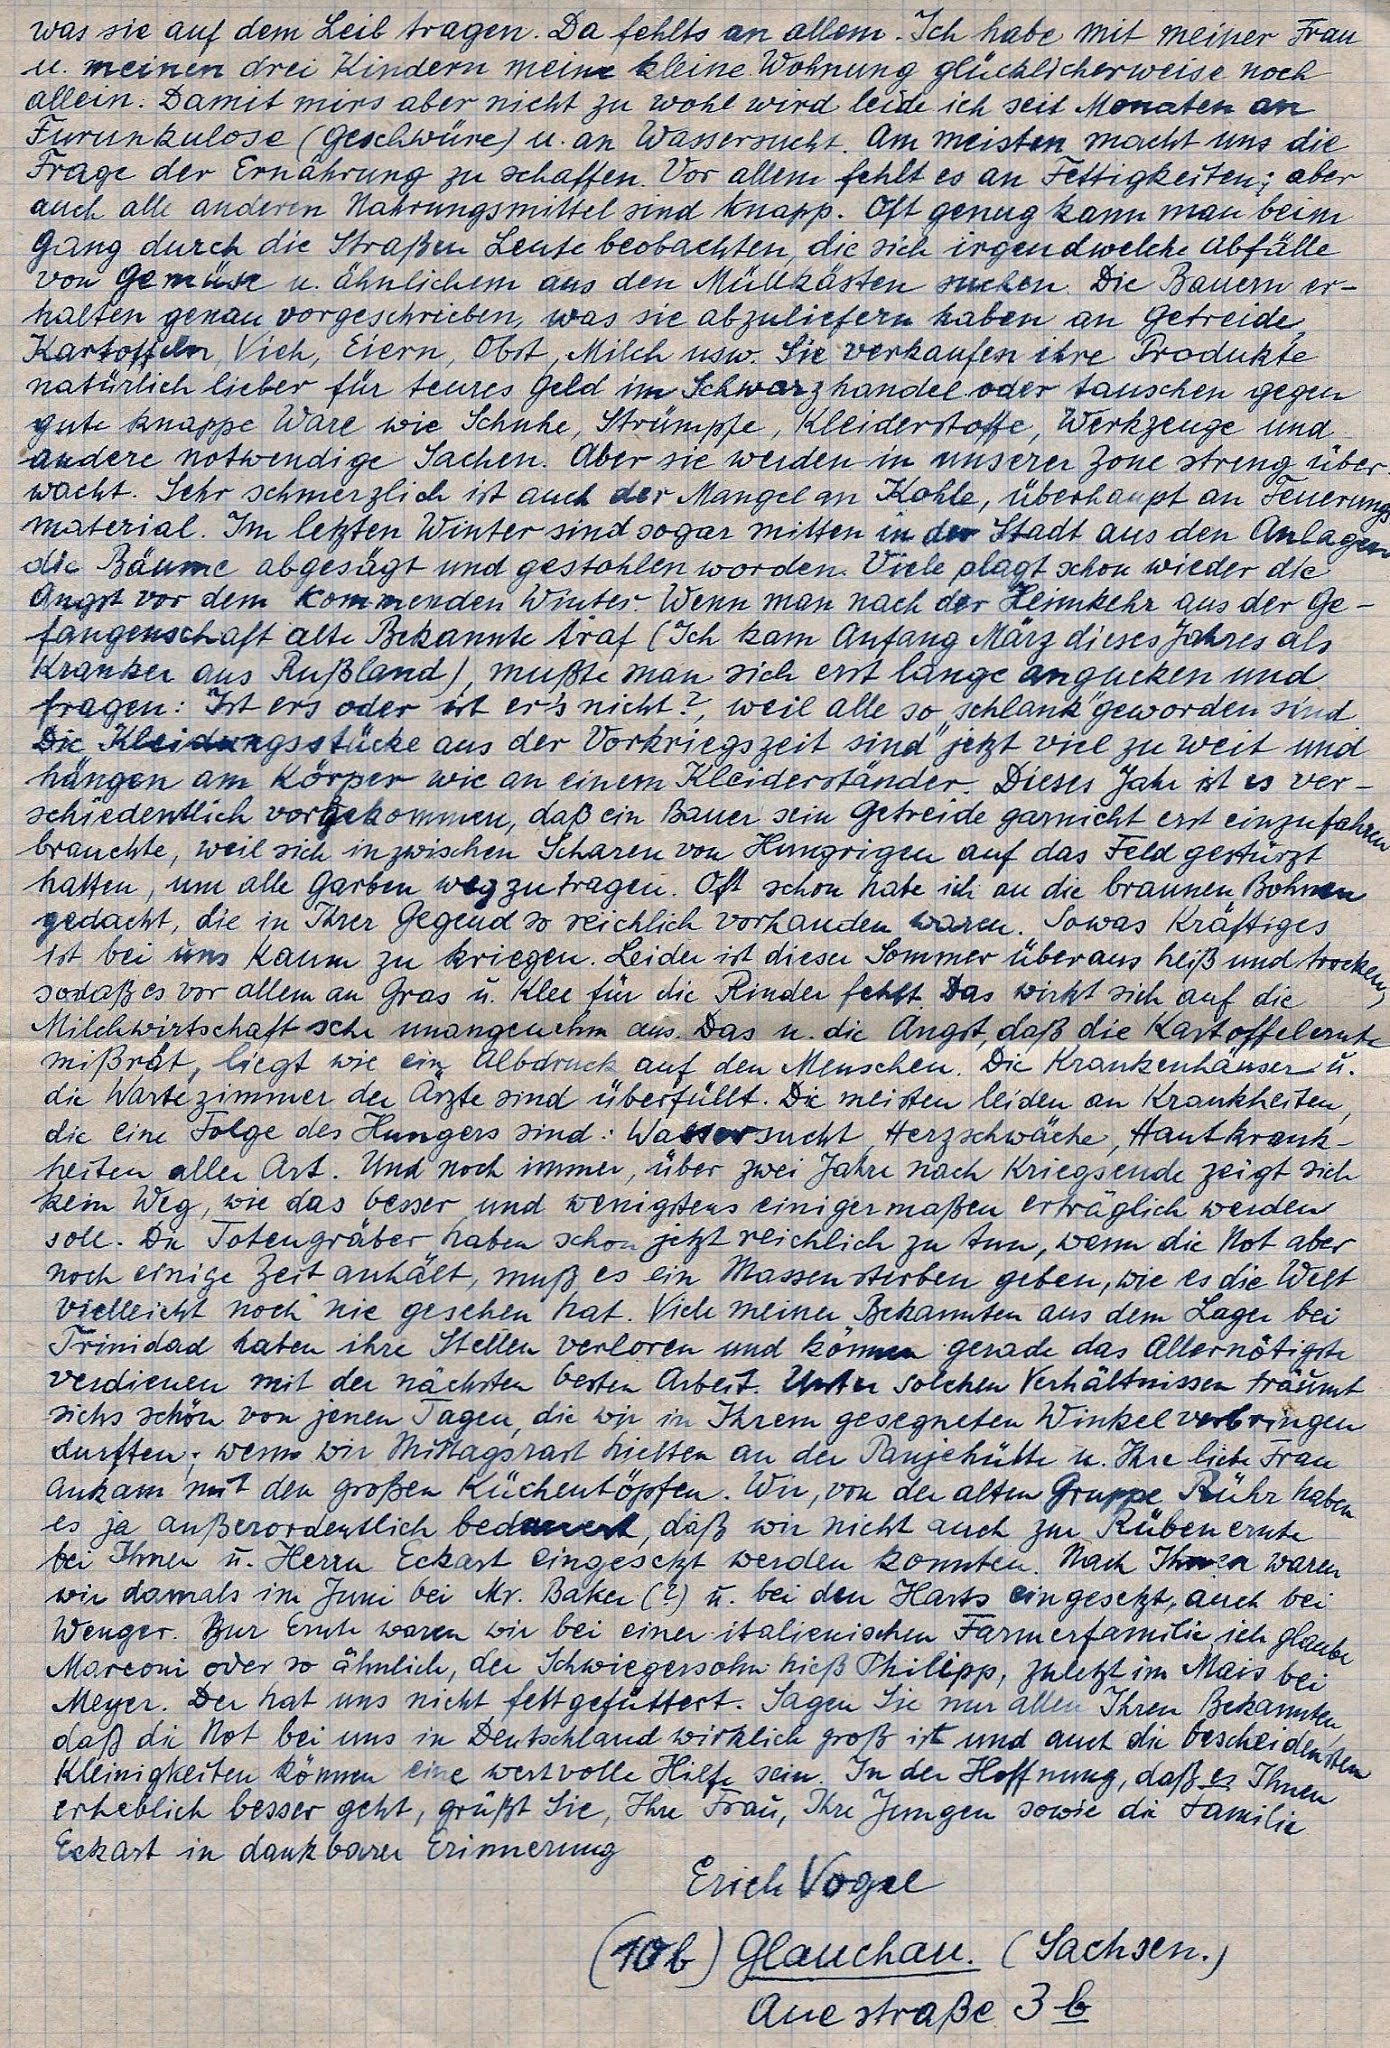 was sie auf dem Leib tragen. Da fehlts an allem. Ich habe mit meiner Frau
u. meinen drei Kindern meine kleine Wohnung glücklicherweise noch
allein. Damit mirs aber nicht zu wohl wird leide ich seit Monaten an
Furunkulose (Geschwüre) u. an Wassersucht. Am meisten macht uns die
Frage der Ernährung zu schaffen. Vor allem fehlt es an Fettigkeiten; aber
auch alle anderen Nahrungsmittel sind knapp. Oft genug kann man beim
Gang durch die Straßen Leute beobachten, die sich irgendwelche Abfälle
von Gemüse u. ähnlichem aus den Müllkästen suchen. Die Bauern er-
halten genau vorgeschrieben, was sie abzuliefern haben an Getreide,
Kartoffeln, Vieh, Eiern, Obst, Milch usw. Sie verkaufen ihre Produkte
natürlich lieber für teures Geld im Schwarzhandel oder tauschen gegen
gute knappe Ware wie Schuhe, Strümpfe, Kleiderstoffe, Werkzeuge und
andere notwendige Sachen. Aber sie werden in unserer Zone streng über-
wacht. Sehr schmerzlich ist auch der Mangel an Kohle, überhaupt an Feuerungs
material. Im letzten Winter sind sogar mitten in der Stadt aus den Anlagen
die Bäume abgesägt und gestohlen worden. Viele plagt schon wieder die
Angst vor dem kommenden Winter. Wenn man nach der Heimkehr aus der Ge-
fangenschaft alte Bekannte traf (Ich kam Anfang März dieses Jahres als
Kranker aus Rußland), mußte man sich erst lange angucken und
fragen: Ist ers oder ist er's nicht?, weil alle so „schlank" geworden sind.
Die Kleidungsstücke aus der Vorkriegszeit sind jetzt viel zu weit und
hängen am Körper wie an einem Kleiderständer. Dieses Jahr ist es ver-
schiedentlich vorgekommen, daß ein Bauer sein Getreide garnicht erst einzufahren
brauchte, weil sich inzwischen Scharen von Hungrigen auf das Feld gestürzt
hatten, um alle Garben wegzutragen. Oft schon habe ich an die braunen Bohnen
gedacht, die in Ihrer Gegend so reichlich vorhanden waren. Sowas Kräftiges
ist bei uns kaum zu kriegen. Leider ist dieser Sommer überaus heiß und trocken,
sodaß es vor allem an Gras u. Klee für die Rinder fehlt. Das wirkt sich auf die
Milchwirtschaft sehr unangenehm aus. Das u. die Angst, daß die Kartoffelernte
mißrät, liegt wie ein Albdruck auf den Menschen. Die Krankenhäuser u.
die Wartezimmer der Ärzte sind überfüllt. Die meisten leiden an Krankheiten,
die eine Folge des Hungers sind: Wassersucht, Herzschwäche, Hautkrank-
heiten aller Art. Und noch immer, über zwei Jahre nach Kriegsende zeigt sich
kein Weg, wie das besser und wenigstens einigermaßen erträglich werden
soll. Die Totengräber haben schon jetzt reichlich zu tun, wenn die Not aber
noch einige Zeit anhält, muß es ein Massensterben geben, wie es die Welt
vielleicht noch nie gesehen hat. Viele meiner Bekannten aus dem Lager bei
Trinidad haben ihre Stellen verloren und können gerade das Allernötigste
verdienen mit der nächsten besten Arbeit. Unter solchen Verhältnissen träumt
sichs schön von jenen Tagen, die wir in Ihrem gesegneten Winkel verbringen
durften; wenn wir Mittagsrast hielten an der Panjehütte u. Ihre liebe Frau
ankam mit den großen Küchentöpfen. Wir, von der alten Gruppe Rühr haben
es ja außerordentlich bedauert, daß wir nicht auch zur Rübenernte
bei Ihnen u. Herrn Eckart eingesetzt werden konnten. Nach Ihnen waren
wir damals im Juni bei Mr. Baker (?) u. bei den Harts eingesetzt, auch bei
Wenger. Zur Ernte waren wir bei einer italienischen Farmerfamilie, ich glaube
Marconi oder so ähnlich, der Schwiegersohn hieß Philipp, zuletzt im Mais bei
Meyer. Der hat uns nicht fettgefüttert. Sagen Sie nur allen Ihren Bekannten,
daß die Not bei uns in Deutschland wirklich groß ist und auch die bescheidensten
Kleinigkeiten können eine wertvolle Hilfe sein. In der Hoffnung, daß es Ihnen
erheblich besser geht, grüßt Sie, Ihre Frau, Ihre Jungen sowie die Familie
Eckart in dankbarer Erinnerung
Erich Vogel
(10b) Glauchau. (Sachsen.)
Auestraße 3b